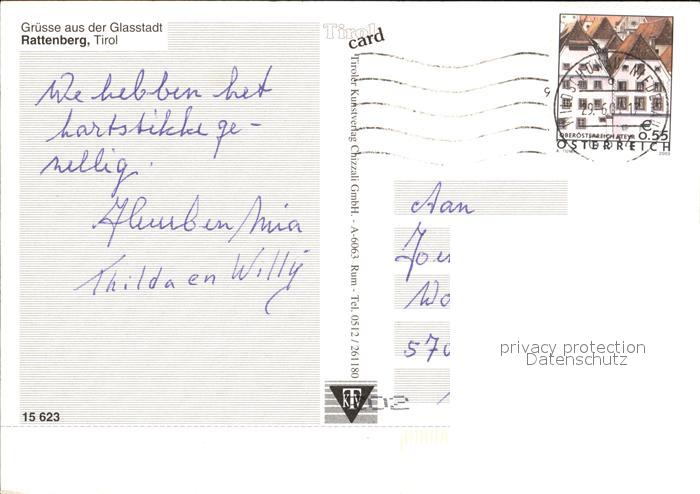 Grüsse aus der Glasstadt
Rattenberg, Tirol
We hebben het
hartstikke ge-
zellig.
Mia
Thilda en Willy
15 623
Tirol
card
Tiroler Kunstverlag Chizzali GmbH. - A-6063 Rum - Tel. 0512 / 261180
KTV
€
0,55
OBERÖSTERREICH STEYR
ÖSTERREICH
2002
Aan
570
privacy protection
Datenschutz